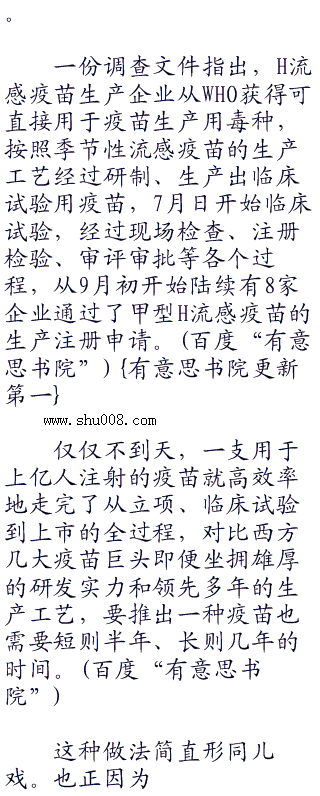 。
一份调查文件指出，H流
感疫苗生产企业从WHO获得可
直接用于疫苗生产用毒种，
按照季节性流感疫苗的生产
工艺经过研制、生产出临床
试验用疫苗，7月日开始临床
试验，经过现场检查、注册
检验、审评审批等各个过
程，从9月初开始陆续有8家
企业通过了甲型H流感疫苗的
生产注册申请。(百度“有意
思书院”){有意思书院更新
第一}
www.shu008.com
仅仅不到天，一支用于
上亿人注射的疫苗就高效率
地走完了从立项、临床试验
到上市的全过程，对比西方
几大疫苗巨头即便坐拥雄厚
的研发实力和领先多年的生
产工艺，要推出一种疫苗也
需要短则半年、长则几年的
时间。(百度“有意思书
院”)
这种做法简直形同儿
戏。也正因为